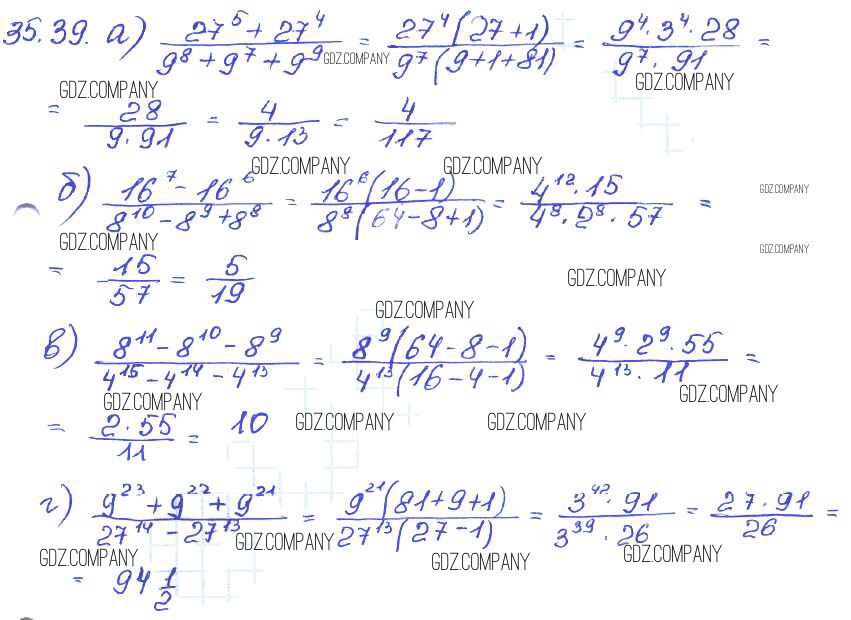 35.39. а) (27⁵ + 27⁴)/(9⁸ + 9⁷ + 9⁹) = (27⁴(27+1))/(9⁷(9+1+81)) = (9⁴·3⁴·28)/(9⁷·91) =
GDZ.COMPANY
GDZ.COMPANY GDZ.COMPANY
= 28/(9·91) = 4/(9·13) = 4/117
GDZ.COMPANY GDZ.COMPANY
б) (16⁷ - 16⁶)/(8¹⁰ - 8⁹ + 8⁸) = (16⁶(16-1))/(8⁸(64-8+1)) = (4¹²·15)/(4⁸·2⁸·57) =
GDZ.COMPANY
GDZ.COMPANY GDZ.COMPANY
= 15/57 = 5/19
GDZ.COMPANY
GDZ.COMPANY
в) (8¹¹ - 8¹⁰ - 8⁹)/(4¹⁵ - 4¹⁴ - 4¹³) = (8⁹(64-8-1))/(4¹³(16-4-1)) = (4⁹·2⁹·55)/(4¹³·11) =
GDZ.COMPANY GDZ.COMPANY
= (2·55)/11 = 10
GDZ.COMPANY GDZ.COMPANY
г) (9²³ + 9²² + 9²¹)/(27¹⁴ - 27¹³) = (9²¹(81+9+1))/(27¹³(27-1)) = (3⁴²·91)/(3³⁹·26) = (27·91)/26 =
GDZ.COMPANY GDZ.COMPANY GDZ.COMPANY GDZ.COMPANY
= 94 1/2